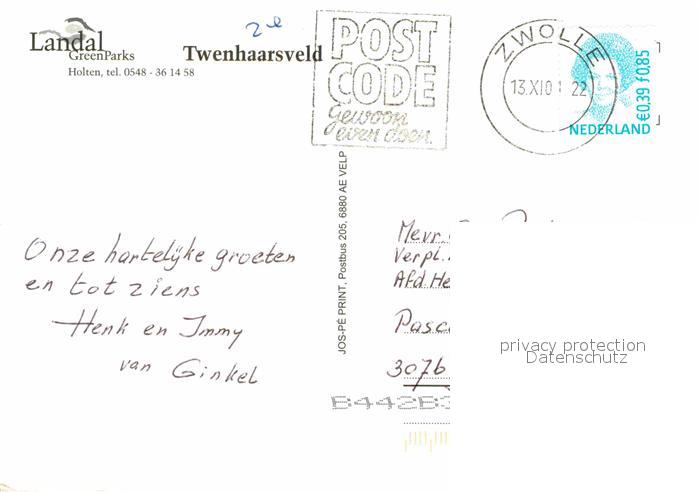 2e
Landal
GreenParks
Twenhaarsveld
Holten, tel. 0548 - 36 14 58
POST
CODE
gewoon
even doen.
ZWOLLE
13.XI01 22
€0,39 ƒ0,85
NEDERLAND
JOS-PÉ PRINT, Postbus 205, 6880 AE VELP
Onze hartelijke groeten
en tot ziens
Henk en Immy
van Ginkel
Mevr.
Verpl.
Afd. He
Pasc
307b
B442B
privacy protection
Datenschutz